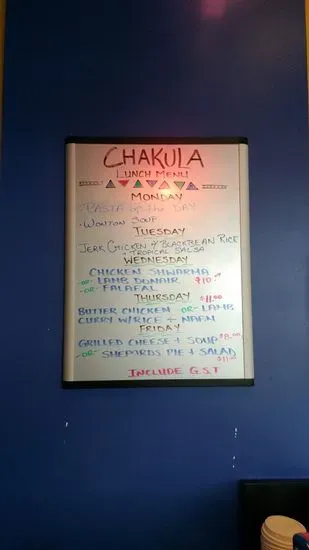 CHAKULA
LUNCH MENU
MONDAY
PASTA of the DAY
• WONTON SOUP
TUESDAY
JERK CHICKEN & BLACKBEAN RICE
+ TROPICAL SALSA
WEDNESDAY
CHICKEN SHWARMA
-OR- LAMB DONAIR $10.00
-OR- FALAFAL
THURSDAY $11.00
BUTTER CHICKEN OR- LAMB
CURRY W/RICE + NAAN
FRIDAY
GRILLED CHEESE + SOUP $8.00
-OR- SHEPARDS PIE + SALAD
$11.00
INCLUDE G.S.T